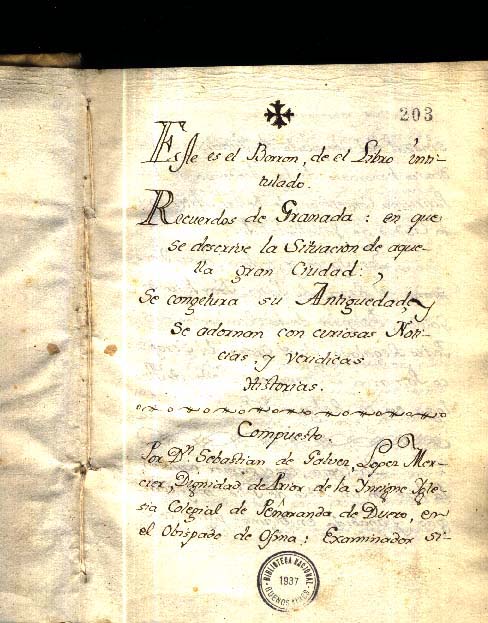 203
Este es el Borron, de el Libro inti-
tulado.
Recuerdos de Granada: en que
se descrive la Situacion de aque-
lla gran Ciudad:,
Se congetura su Antiguedad, y
Se adornan con curiosas Noti-
cias, y veridicas
Historias.
Compuesto.
Por Dn. Sebastian de Galvez, Lopez Mer-
cier, Dignidad de Prior de la Ynsigne Ygle-
sia Colegial de Peñaranda de Duero, en
el Obispado de Osma: Examinador Si-
BIBLIOTECA NACIONAL
1937
BUENOS AIRES